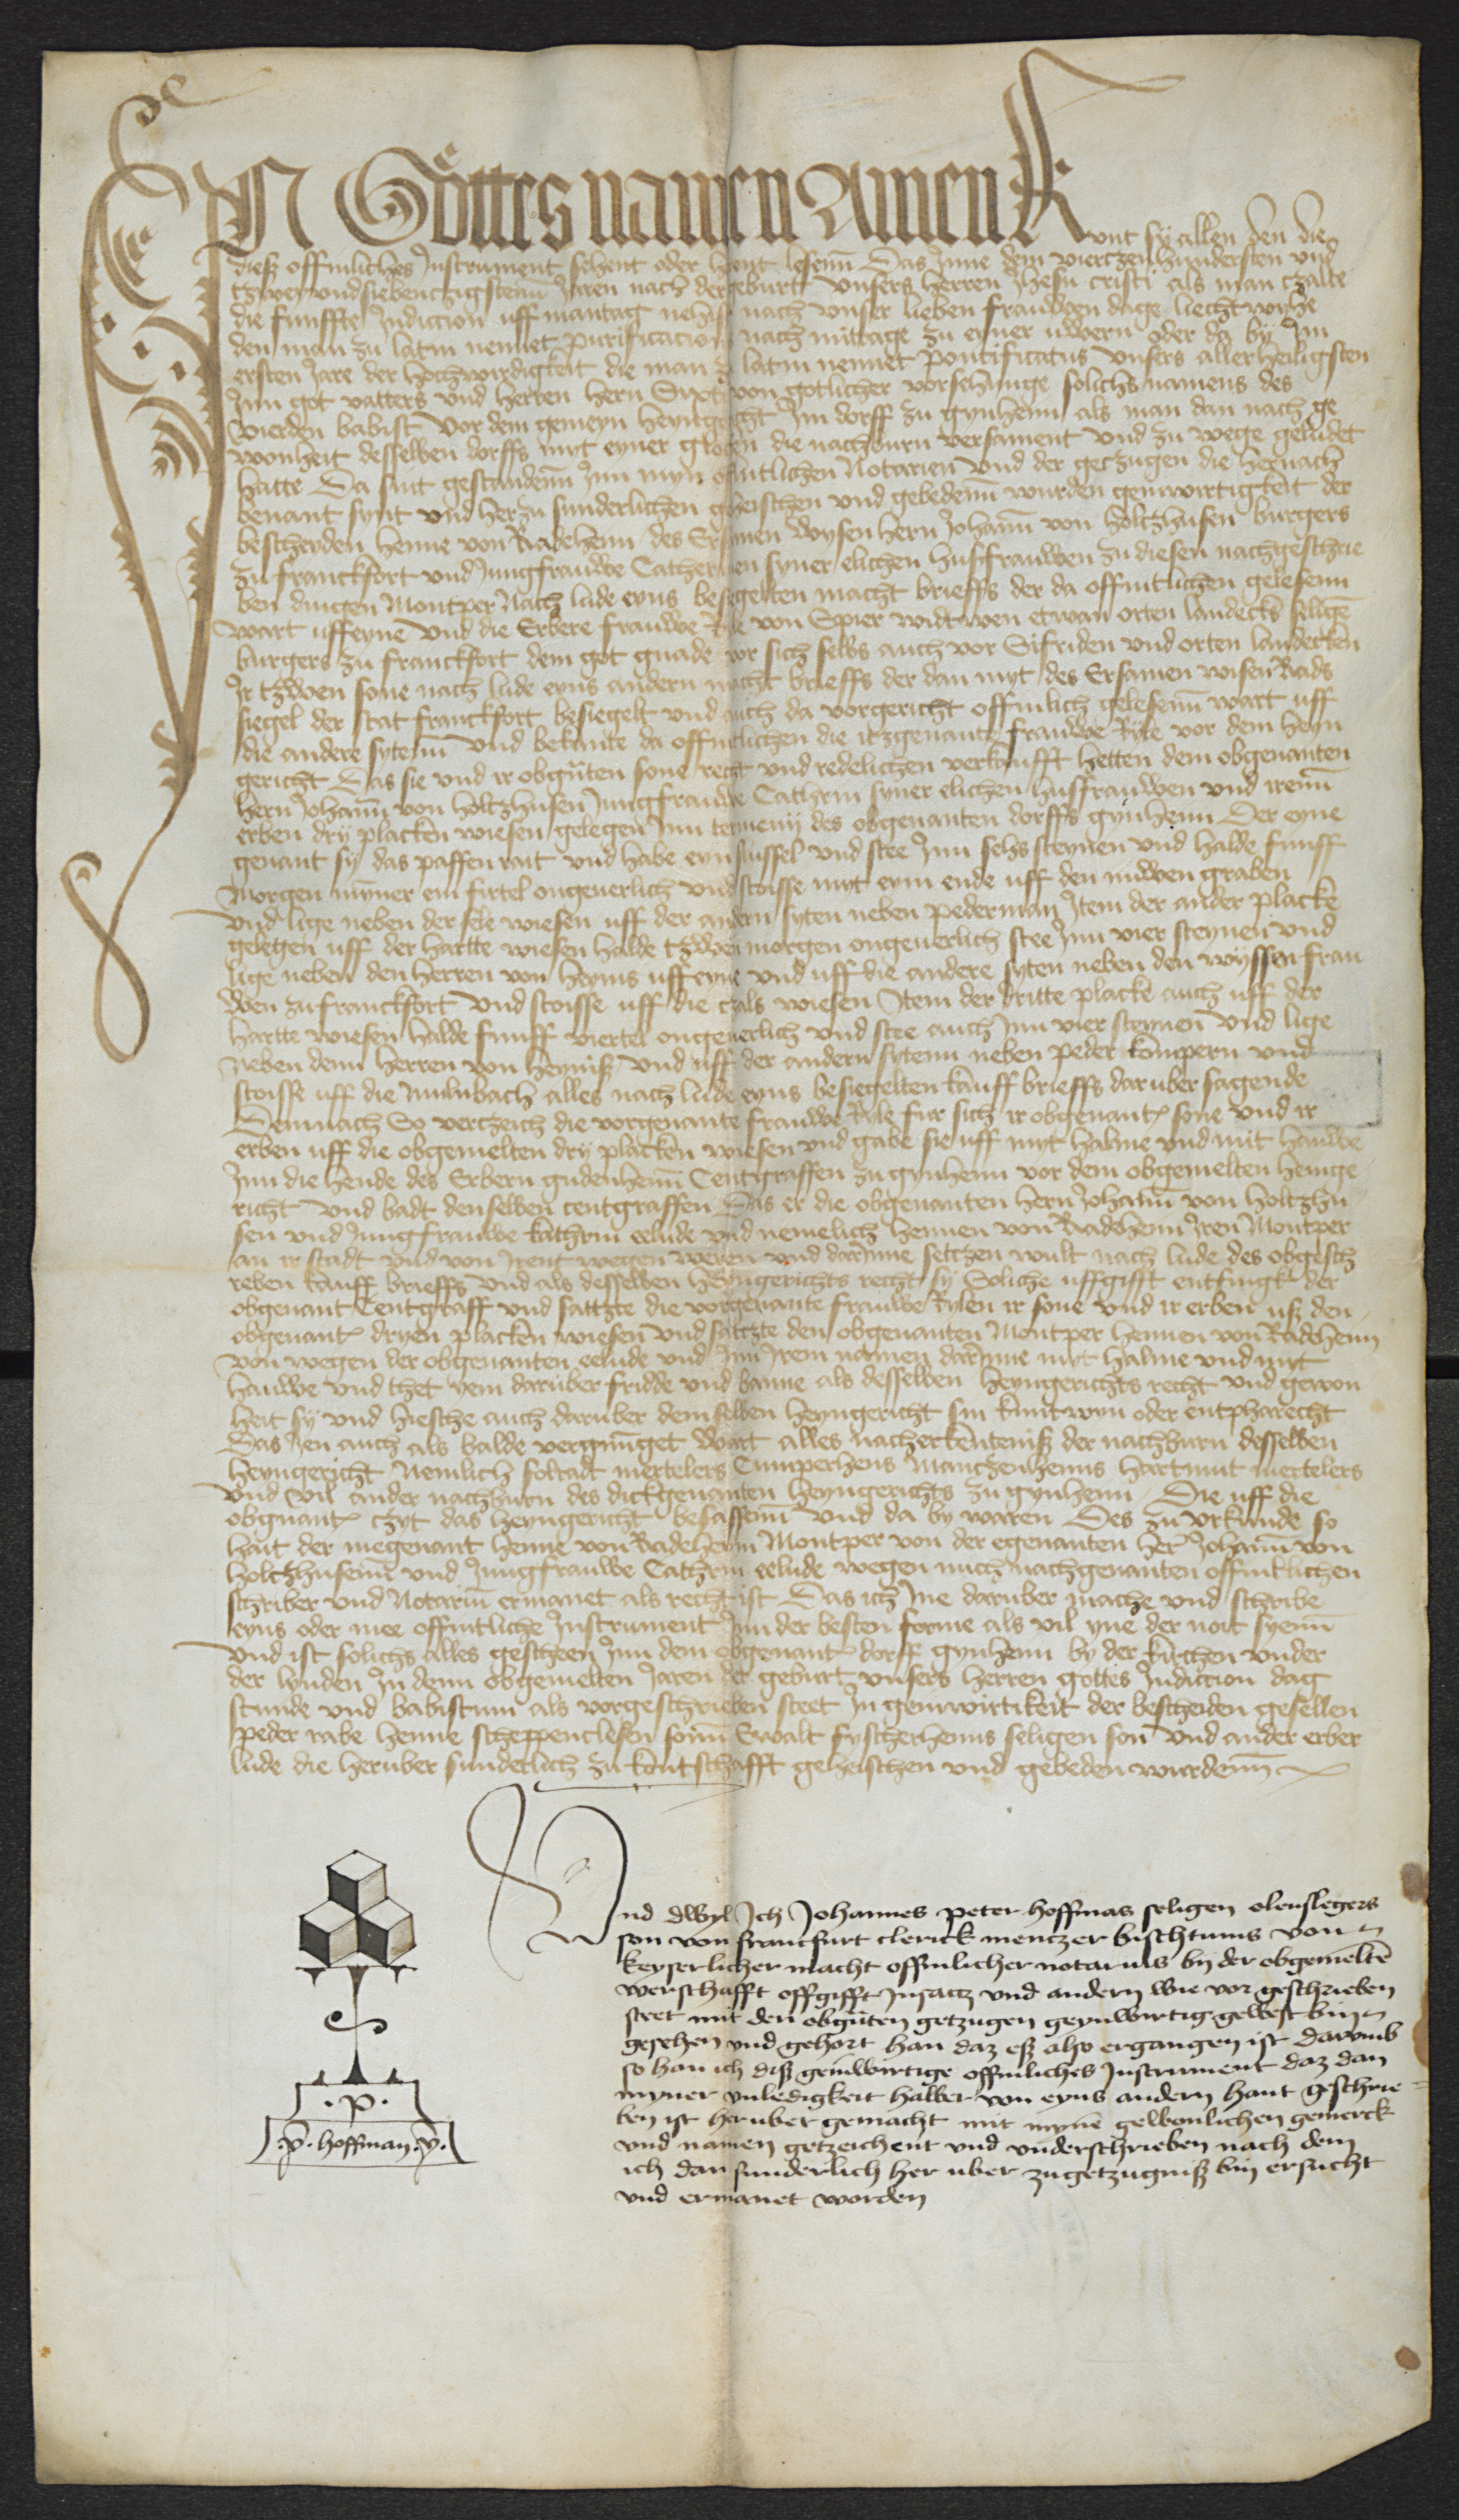 IN Gottes namen Amen Kunt sy allen den die
dieß offinliches Instrument sehent oder horent lesenn Das Inne dem viertzenhundersten und
tzwey und siebenczigstenn Jaren nach der geburt unsers herren Jhesu cristi als man czalte
die funffte Indiccion uff mantag nehst nach unser lieben frauwen dage liechtwyhe
den man zu latin nennet purificacionis nach mittage zu eyner uwern oder da by Im
ersten Jare der hochwirdigkeit die man zu latin nennet pontificatus unsers allerheiligsten
Inn got vatters und herren hern Sixti von gotlicher vorsehunge solichs namens des
vierden babist vor dem gemeyn heyngericht Im dorff zu gynhenn als man dan nach ge
wonheit desselben dorffs myt eyner glocken die nachburn versament und zu wege geludet
hatte Da sint gestandenn Inn myn offintlichen Notarien und der getzugen die hernach
benant synt und herzu sunderlichen geheischen und gebedenn wurden geinwirtigkeit der
bescheyden Henne von Radehenn des Ersamen wysen hern Johann von holtzhusen burgers
zu franckfort und Jungfrauwe Catherinen syner elichen hußfrauwen zu diesen nachgeschrie
ben dingen Montper Nach lude eyns besiegelten macht brieffs der da offintlichen gelesenn
wart uff eyne und die Erbere frauwe Ryle von Spier widtwen etwan orten landecks seligen
burgers zu franckfort dem got gnade vor sich selbs auch vor Sifriden und orten landecken
Ir tzwen sone nach lude eyns andern macht brieffs der dan myt des Ersamen wisen Rads
siegel der stat franckfort besiegelt und auch da vorgericht offinlich gelesenn wart uff
die andere sytenn und bekante da offintlichen die itzgenante frauwe Ryle vor dem heyn
gericht Das sie und ir obgnten sone recht und redelichen verkaufft hetten dem obgenanten
hern Johann von holtzhusen Jungfrauwe Cathrin syner elichen hußfrauwen und irenn
erben dry placken wiesen gelegen Inn termeny des obgenanten dorffs gynhenn Der eyne
genant sy das paffen rait und habe eyn slussel und stee Inn sehs steynen und halde funff
Morgen mynner ein firtel ongeverlich und stoisse myt eym ende uff den nuwen graben
und lige neben der sele wiesen uff der andern syten neben pederman Item der ander placke
gelegen uff der hartte wiesen halde tzwen morgen ongeverlich stee Inn vier steynen und
lige neben den herren von heyniß uff eyne und uff die andere syten neben den wyssen frau
wen zu franckfort und stoisse uff die czals wiesen Item der dritte placke auch uff der
hartte wiesen halde funff viertel ongeverlich und stee auch Inn vier steynen und lige
neben denn herren von heyniß und uff der andern sytenn neben peder kompern und
stoisse uff die Mulnbach alles nach lude eyns besiegelten kauff brieffs daruber sagende
Demnach So verczeich die vorgenante frauwe Ryle fur sich ir obgenant sone und ir
erben uff die obgemelten dry placken wiesen und gabe sie uff myt halme und mit hauwe
Inn die hende des Erbern gudenhenn Centgraffen zu gynhenn vor dem obgemelten heinge
richt und badt denselben centgraffen Das er die obgenanten hern Johann von holtzhu
sen und Jungfrauwe kathrin eelude und nemelich Hennen von Radehenn Iren Montper
an ir stadt und von Irent wegen weren und darInne setczen wult nach lude des obgesch
reben kauff brieffs und als desselben heyngerichts recht sy Soliche uffgifft entfingk der
obgenant Centgraff und sattzte die vorgenante frauwe Rylen ir sone und ir erben uß den
obgenant dryen placken wiesen und sattzte den obgenanten Montper Hennen von Radehenn
von wegen der obgenanten eelude und Inn Irem namen darInne myt halme und myt
hauwe und thet yem daruber fridde und banne als desselben heyngerichts recht und gewon
heit sy und hiesche auch daruber demselben heyngericht sin kuntwyn oder entpharecht
Das Jen auch als balde vergnuget wart alles nacherkenteniß der nachburn desselben
heyngericht Nemlich folradt mertelers Cumperhens Manczenhenns Hartmut mertelers
und vil ander nachburn des dickgenanten heyngerichts zu gynhenn Die uff die
obgnant czyt das heyngericht besassenn und da by waren Des zu urkunde so
hait der megenant Henne von Radehenn Montper von der egenanten her Johann von
holtzhusenn und Jungfrauwe Cathrin eelude wegen mich nachgenanten offintlichen
schriber und Notarium ermanet als recht ist Das ich Ine daruber mache und schribe
eyns oder mee offintliche Instrument Inn der besten forme als vil yne der noit syenn
und ist solichs alles gescheen Inn dem obgenant dorff gynhenn by der kirchen under
der lynden In denn obgemelten Jaren der geburt unsers herren gottes Indiccion dag
stunde und babistum als vorgeschrieben steet In geinwirtikeit der bescheiden gesellen
peder rabe Henne scheppenclesen sonn Ewalt fyscherhenns seligen son und ander erber
lude die heruber sunderlich zu kontschafft geheischen und gebeden wurdenn
Und dwyl Ich Johannes peter hoffmas seligen olenslegers
son von francfurt clerick menczer bischtums von
keyserlicher macht offinlicher notarius by der obgemelte
werschafft offgifft Insacz und andern wie vor geschrieben
steet mit den obgnten getzugen geynwirtig gewest bin
gesehen und gehort han daz eß also ergangen ist darumb
so han ich diß geinwirtige offinliches Instrument daz dan
myner unledigkeit halber von eyns andern hant geschrie
ben ist heruber gemacht mit myne gewonlichen gemerck
und namen getzeichent und underschrieben nach dem
ich dan sunderlich her uber zugetzugniß bin ersucht
und ermanet worden
.p.
.p. hoffman .p.